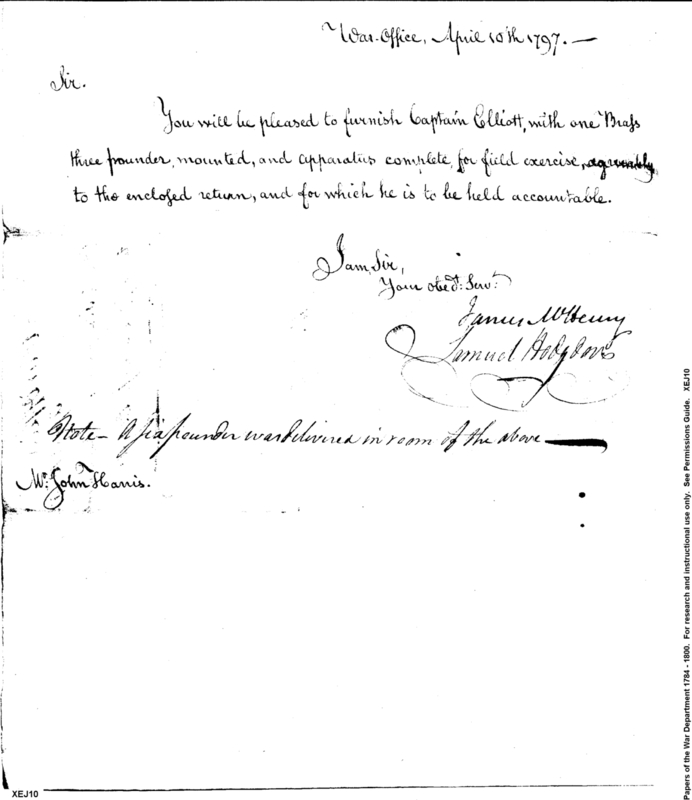 War-Office, April 10th 1797. —
Sir.
You will be pleased to furnish Captain Elliott, with one Brass
three pounder, mounted, and apparatus complete, for field exercise, agreeably
to the enclosed return, and for which he is to be held accountable.
I am, Sir,
Your obed.t Serv.t
James McHenry
Samuel Hodgdon
Note – A six pounder was delivered in room of the above —
Mr. John Harris.
XEJ10
Papers of the War Department 1784 - 1800. For research and instructional use only. See Permissions Guide. XEJ10